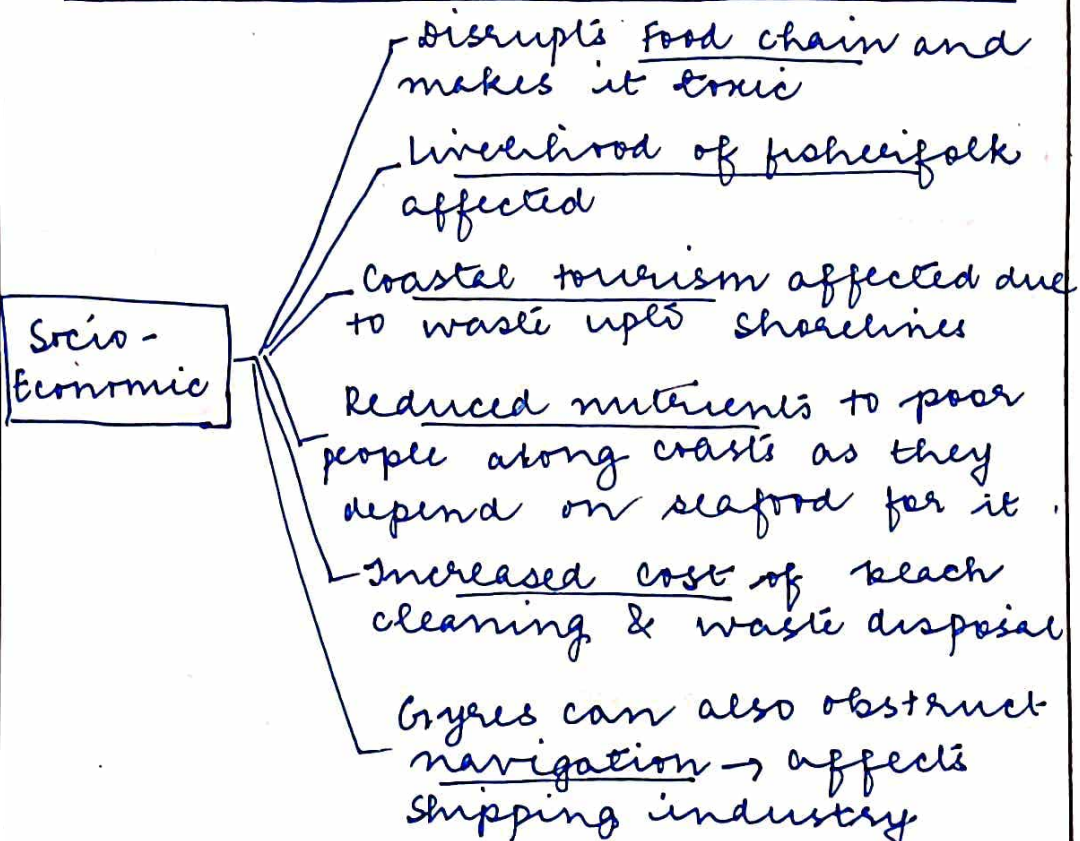 Socio-
Economic
Disrupts food chain and
makes it toxic
Livelihood of fisherfolk
affected
Coastal tourism affected due
to waste upto shorelines
Reduced nutrients to poor
people along coasts as they
depend on seafood for it.
Increased cost of beach
cleaning & waste disposal
Gyres can also obstruct
navigation → affects
shipping industry